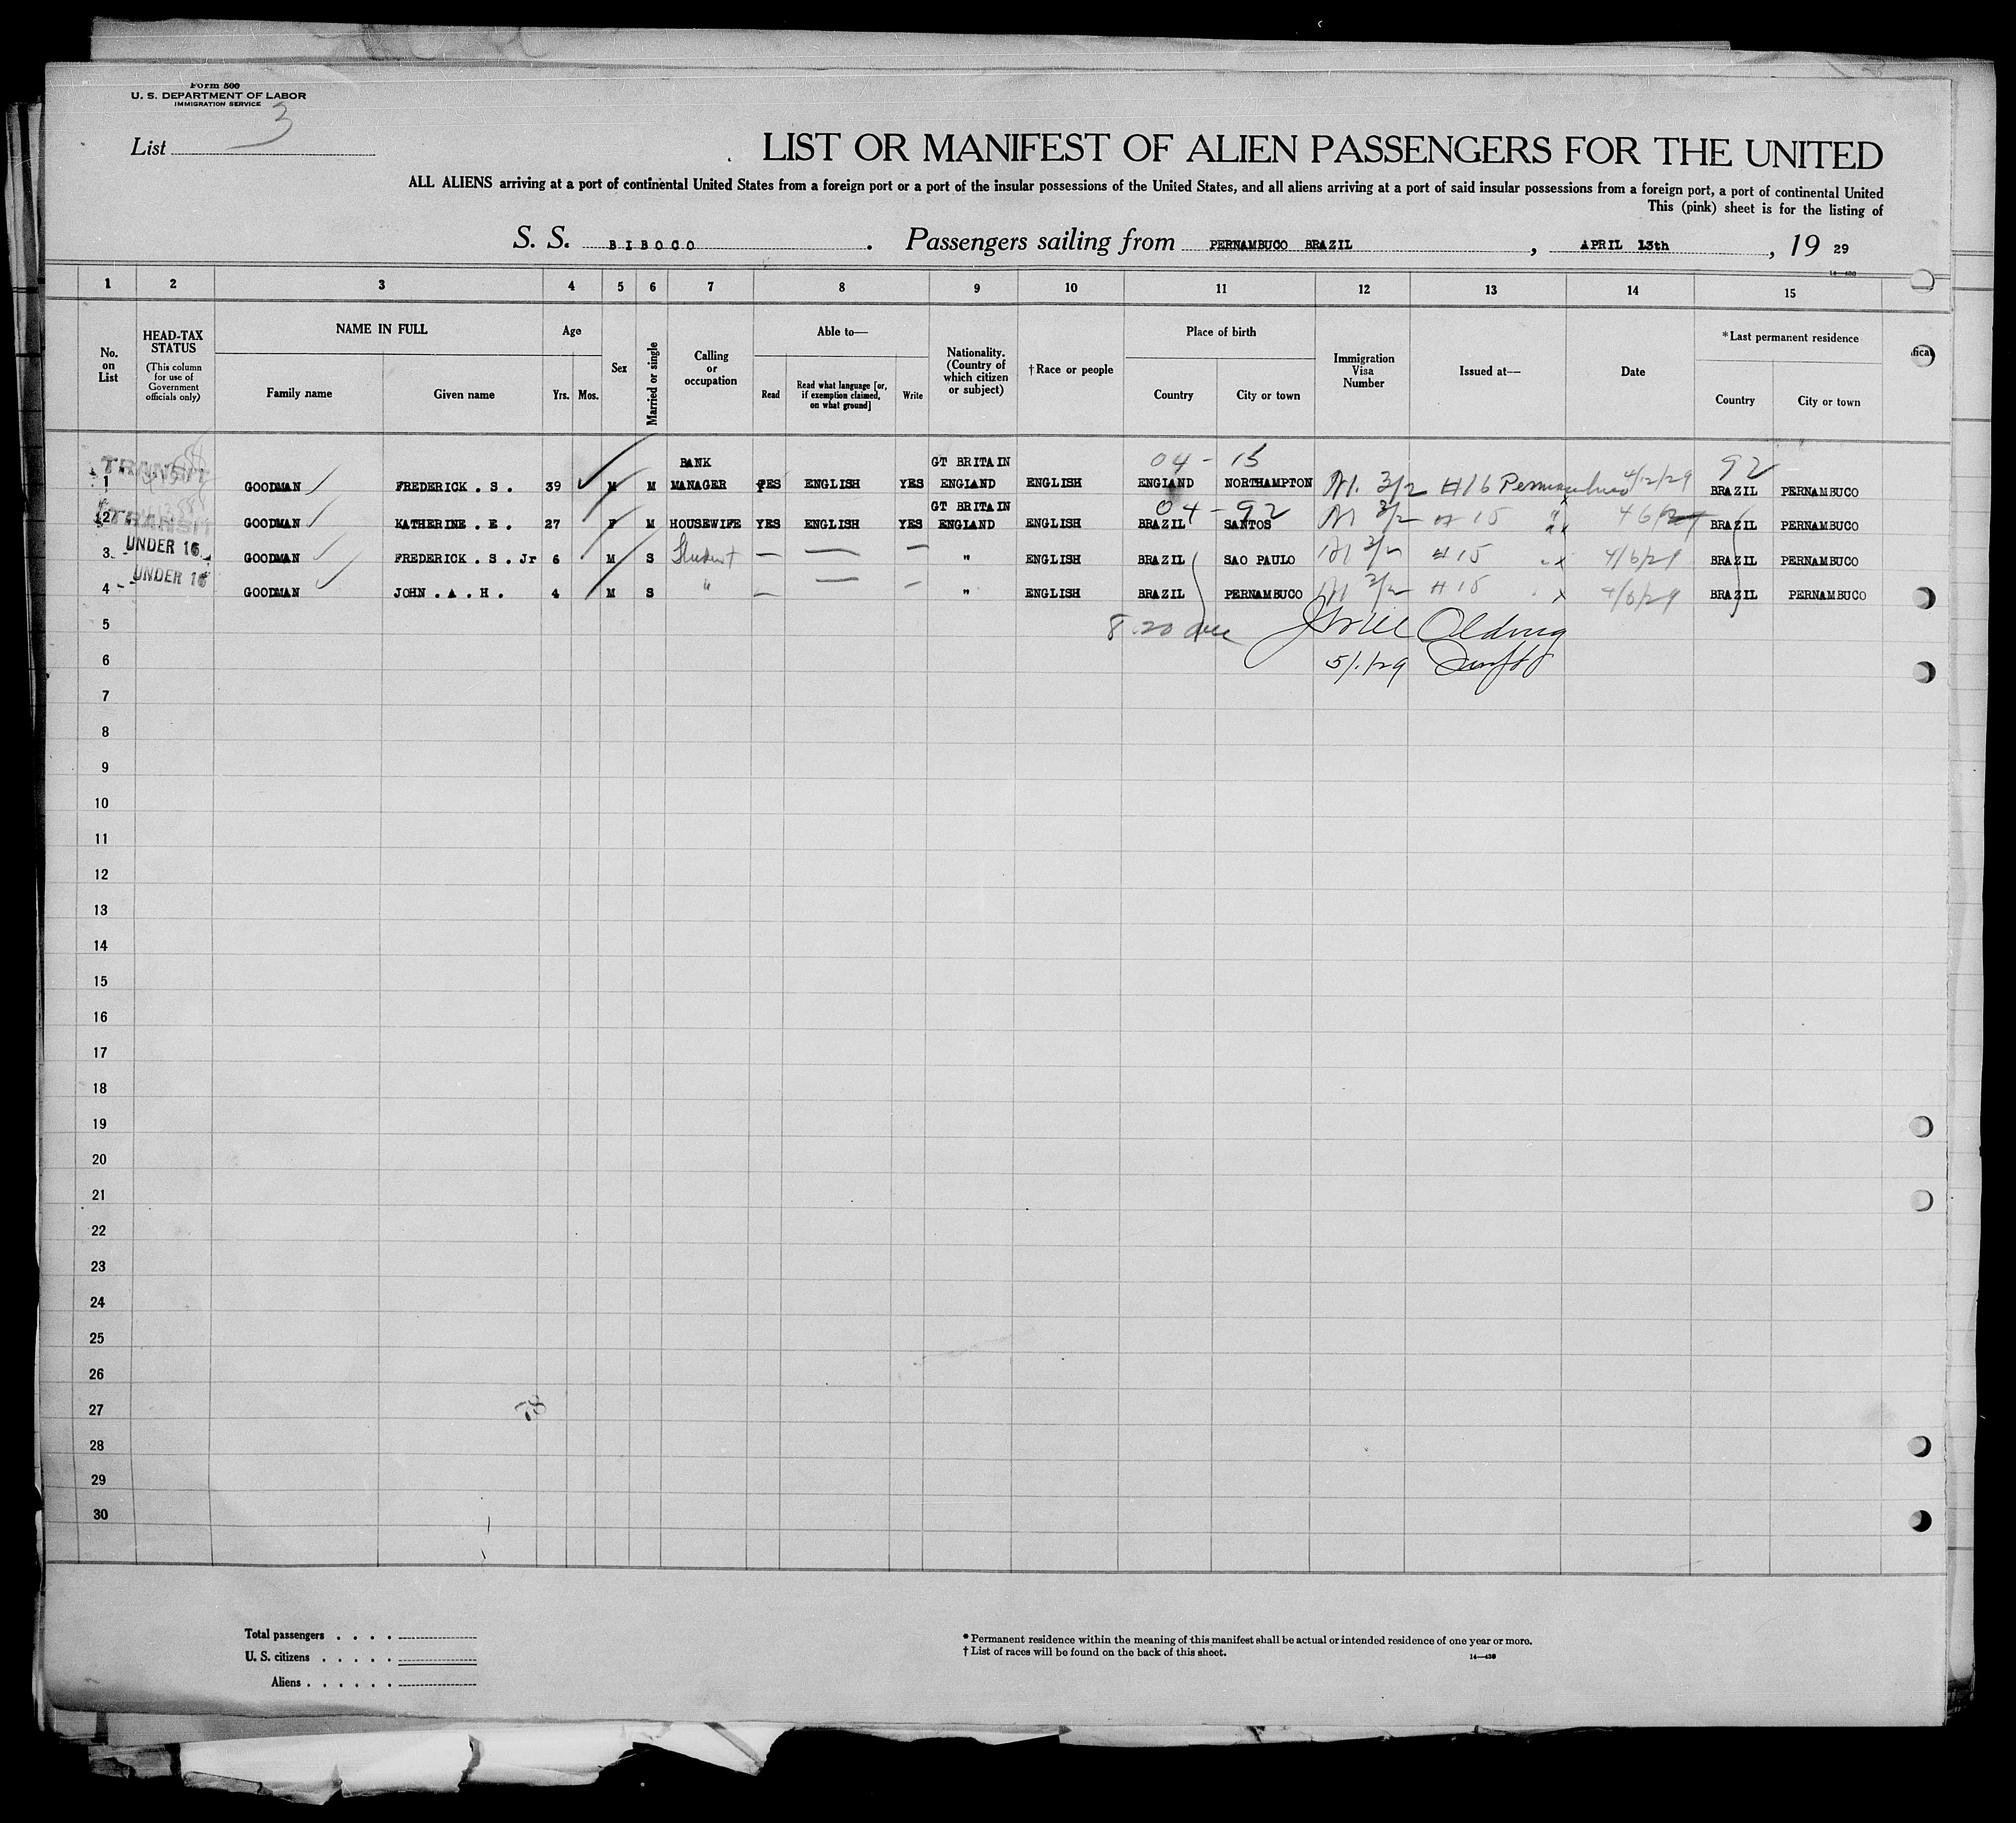 Form 500
U. S. DEPARTMENT OF LABOR
IMMIGRATION SERVICE
List 3
LIST OR MANIFEST OF ALIEN PASSENGERS FOR THE UNITED
ALL ALIENS arriving at a port of continental United States from a foreign port or a port of the insular possessions of the United States, and all aliens arriving at a port of said insular possessions from a foreign port, a port of continental United
This (pink) sheet is for the listing of
S. S. BIBOCO. Passengers sailing from PERNAMBUCO BRAZIL, APRIL 13th, 19 29
14—430
1 2 3 4 5 6 7 8 9 10 11 12 13 14 15
No. on List
HEAD-TAX STATUS
(This column for use of Government officials only)
NAME IN FULL
Family name Given name
Age
Yrs. Mos.
Sex
Married or single
Calling or occupation
Able to—
Read Read what language [or, if exemption claimed, on what ground] Write
Nationality. (Country of which citizen or subject)
†Race or people
Place of birth
Country City or town
Immigration Visa Number
Issued at—
Date
*Last permanent residence
Country City or town
TRANSIT BANK GT BRITAIN 04 - 15 92
1 GOODMAN FREDERICK . S . 39 M M MANAGER YES ENGLISH YES ENGLAND ENGLISH ENGLAND NORTHAMPTON 3/2 #16 Pernambuco 4/12/29 BRAZIL PERNAMBUCO
TRANSIT GT BRITAIN 04 - 92
2 GOODMAN KATHERINE . E . 27 F M HOUSEWIFE YES ENGLISH YES ENGLAND ENGLISH BRAZIL SANTOS 3/2 # 15 " BRAZIL PERNAMBUCO
UNDER 16
3 GOODMAN FREDERICK . S . Jr 6 M S Student — — — " ENGLISH BRAZIL SAO PAULO 3/2 #15 " 4/6/29 BRAZIL PERNAMBUCO
UNDER 16
4 GOODMAN JOHN . A . H . 4 M S " — — — " ENGLISH BRAZIL PERNAMBUCO 3/2 #15 4/6/29 BRAZIL PERNAMBUCO
5 8.20
6 5/1/29
7
8
9
10
11
12
13
14
15
16
17
18
19
20
21
22
23
24
25
26
27
28
29
30
78
Total passengers . . . .
U. S. citizens . . . . .
Aliens . . . . . .
* Permanent residence within the meaning of this manifest shall be actual or intended residence of one year or more.
† List of races will be found on the back of this sheet.
14—430